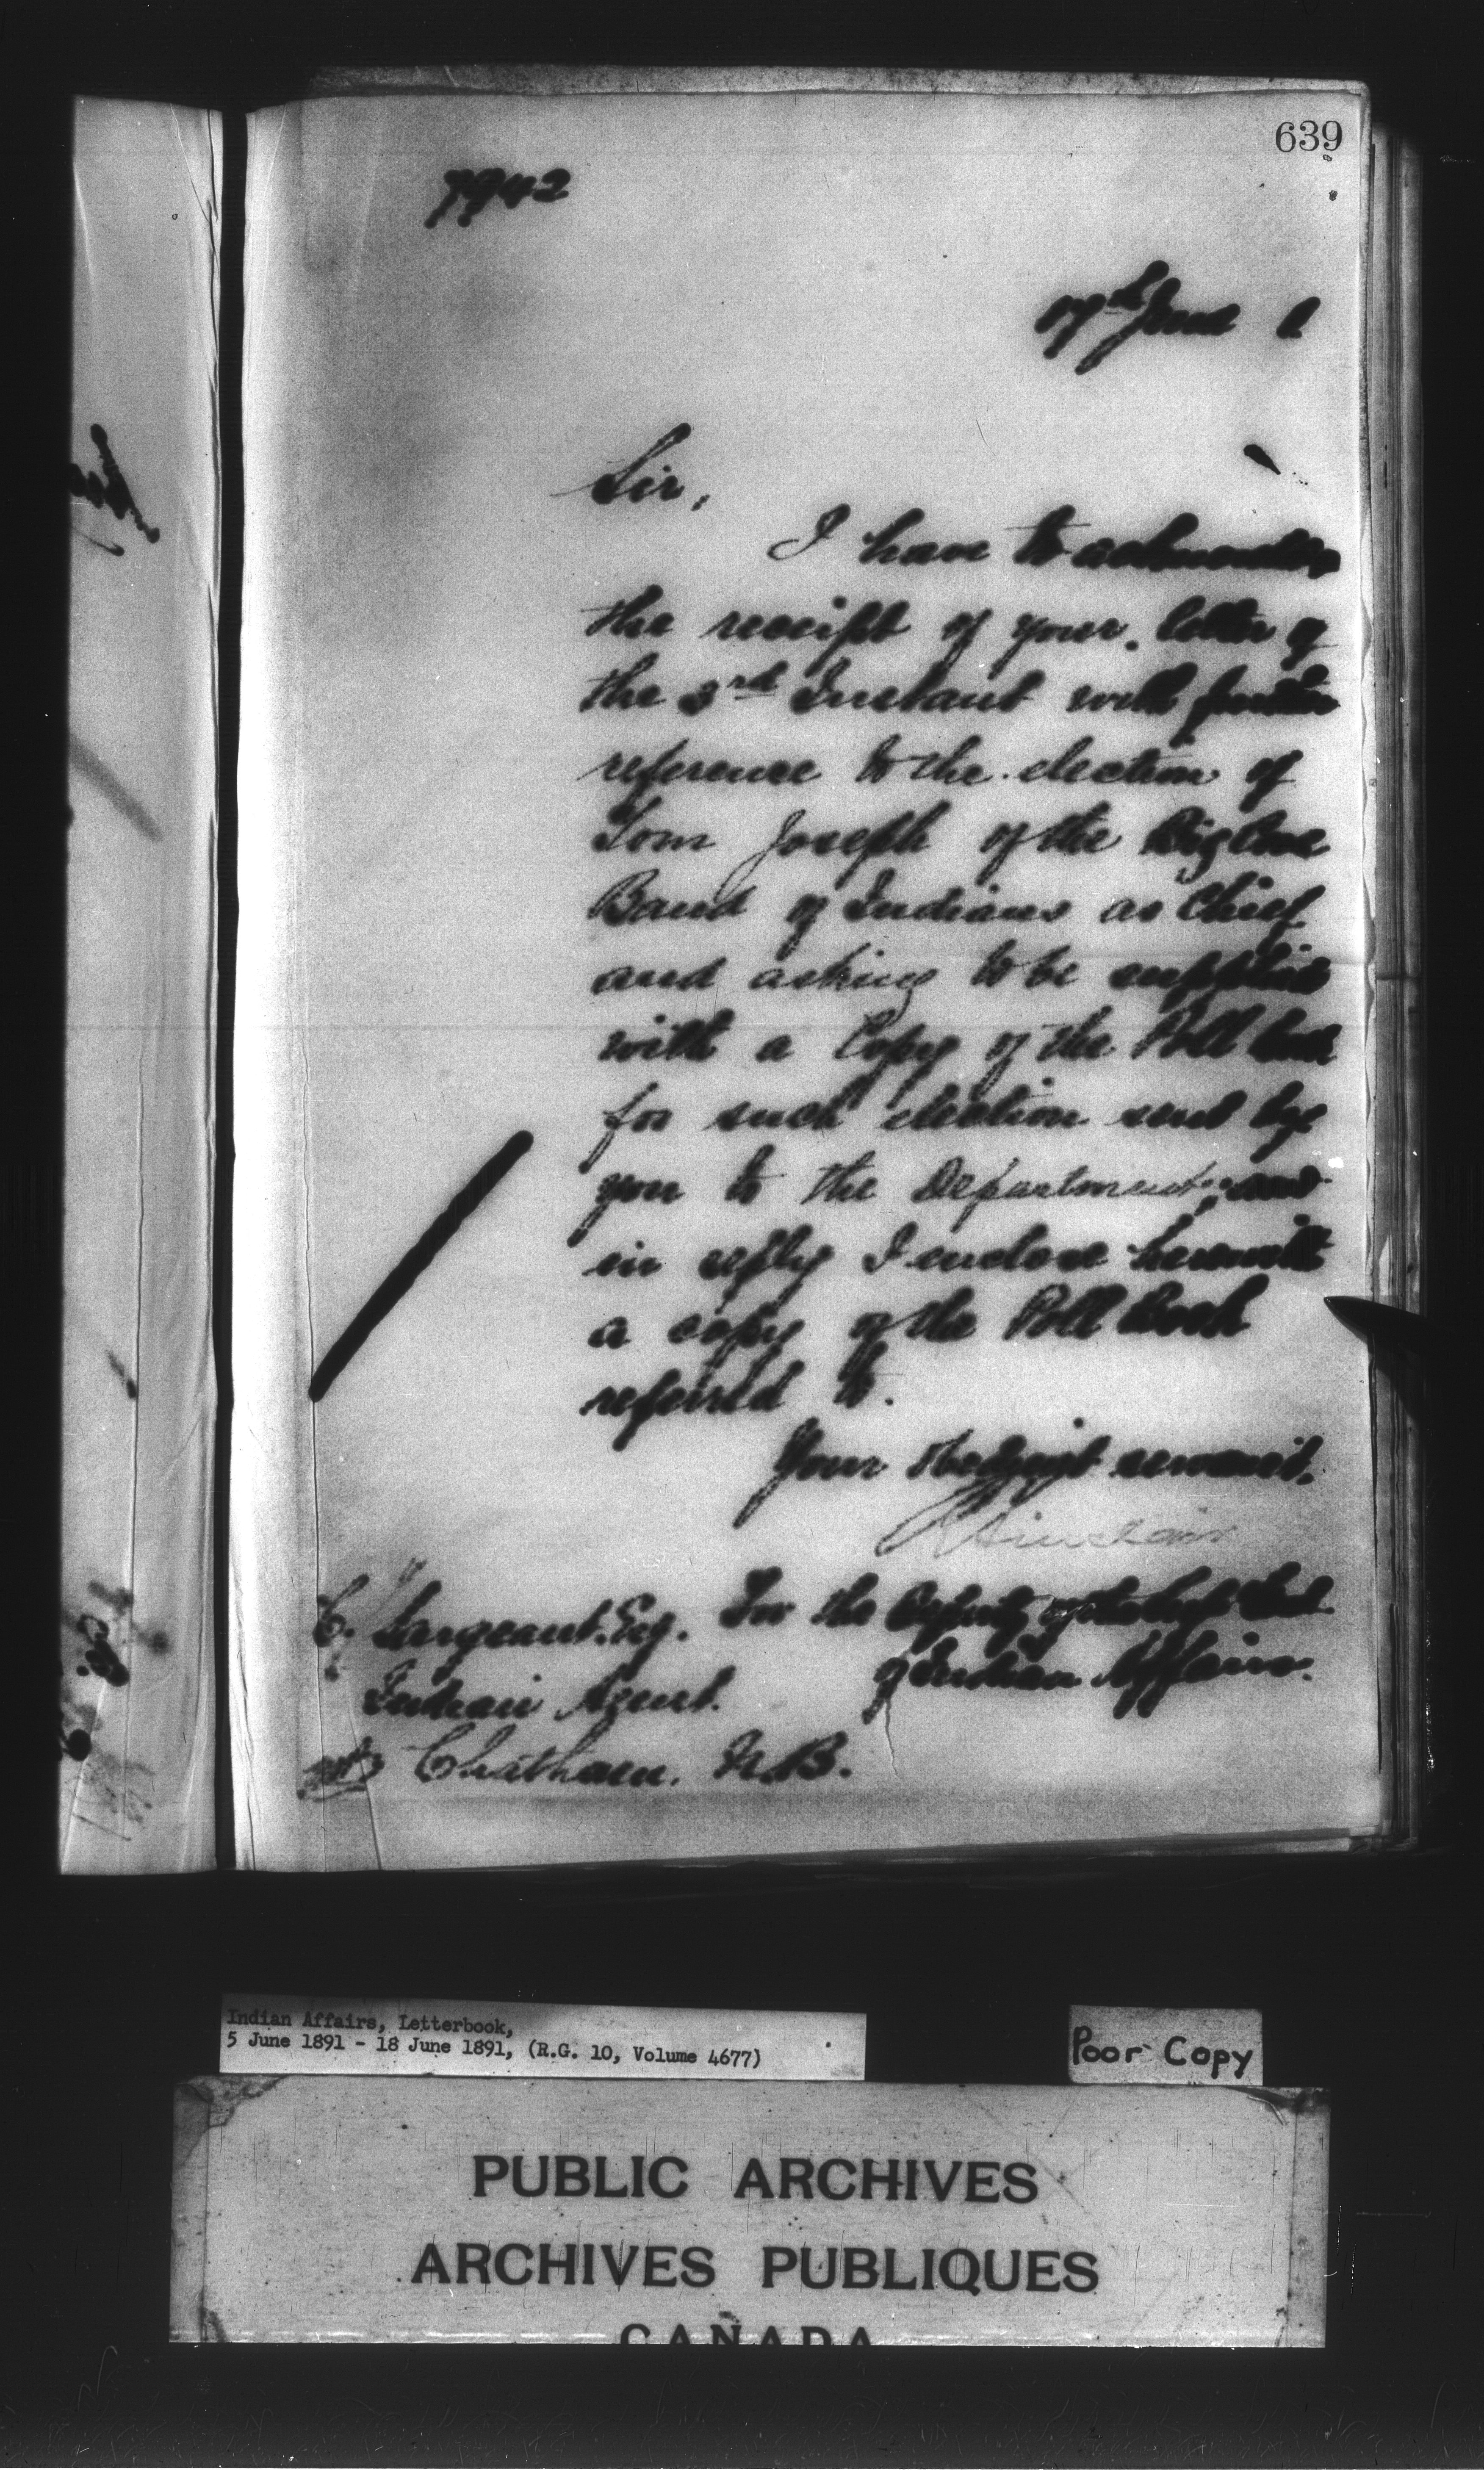 639
7942
17th June 1
Sir,
I have to acknowledge
the receipt of your letter of
the 3rd Instant with further
reference to the election of
Tom Joseph of the Big Cove
Band of Indians as Chief
and asking to be supplied
with a Copy of the Poll book
for such election sent by
you to the Department; and
in reply I enclose herewith
a copy of the Poll Book
referred to.
Your obedient servant,
Sinclair
For the Deputy of the Supt Genl
of Indian Affairs.
C. Sargeant. Esq.
Indian Agent.
Chatham. N.B.
Indian Affairs, Letterbook,
5 June 1891 - 18 June 1891, (R.G. 10, Volume 4677)
Poor Copy
PUBLIC ARCHIVES
ARCHIVES PUBLIQUES
CANADA